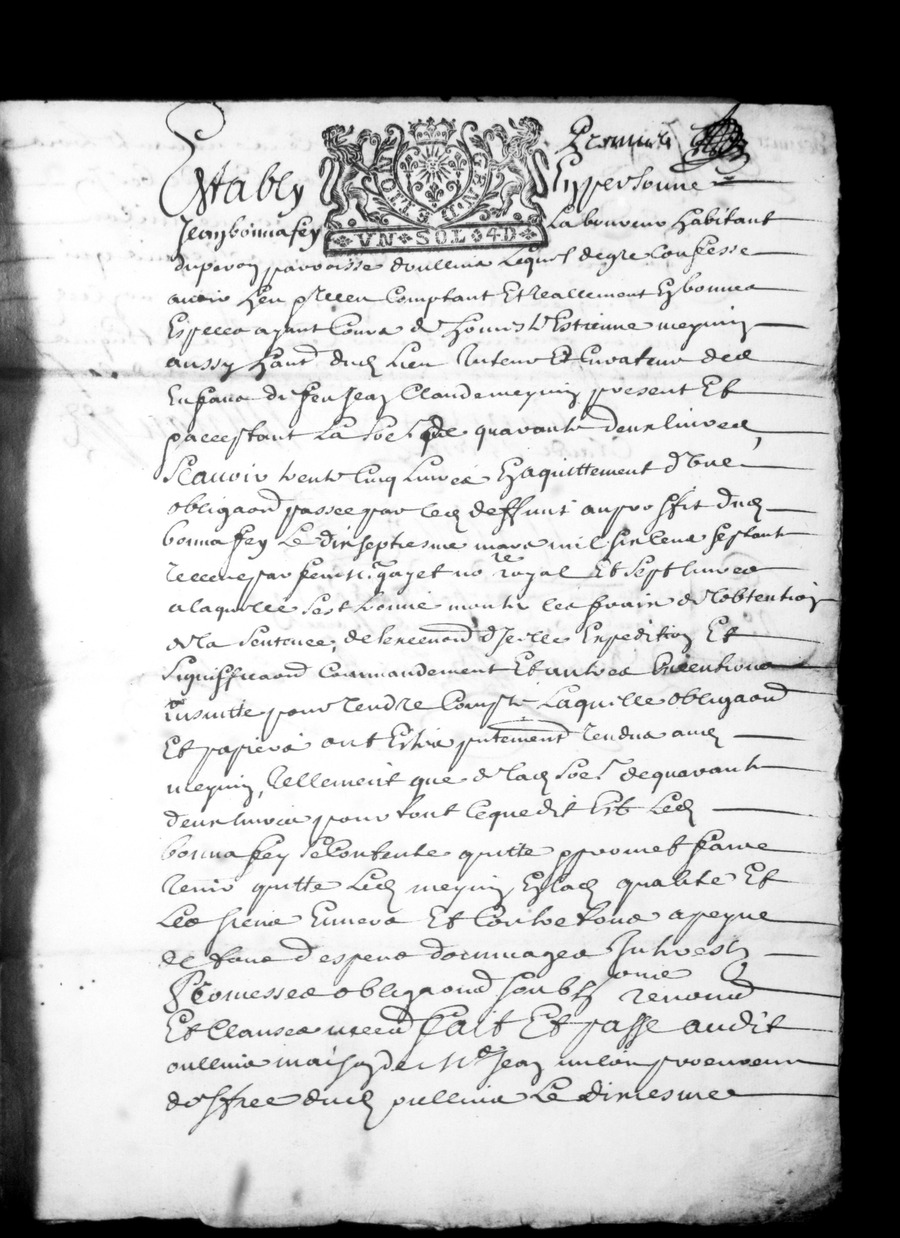 Premiere
Estably En personne
Jean bonnafey Laboureur habitant
du peron parroisse doullins Lequel de gre Confesse
avoir heu Comptant Et reallement En bonnes
Especes ayant Cours de Estienne meynin
aussy hant dud Lieu tuteur Et Curateur des
Enfans de feu Jean Claude meynin present Et
acceptant La so͠e de quarante deux livres
Scavoir trente Cinq livres En aquittement d'une
obliga͠on passee par led deffunt au proffit dud
bonnafey Le dixseptiesme mars mil six Cens septante
receue par feu gayet no re royal Et sept livres
a laquelle sest monte les frais de l'obtention
de la Sentence, Expedition Et
Signiffica͠on Commandement Et autres Executions
Ensuitte pour rendre Compte Laquelle obliga͠on
Et papiers ont Estés rendus aud
meynin, tellement que de lad so͠e de quarante
deux livres pour tout Ce que dit Est Led
bonnafey se Contente quitte promet faire
tenir quitte Led meynin En lad qualite Et
Les siens Envers Et Contre tous a peyne
de tous despens dommages Interest
Promesses obliga͠on
Et Clauses fait Et passe audit
oullins maison de Me Jean procureur
d'office dud oullins Le dixiesme